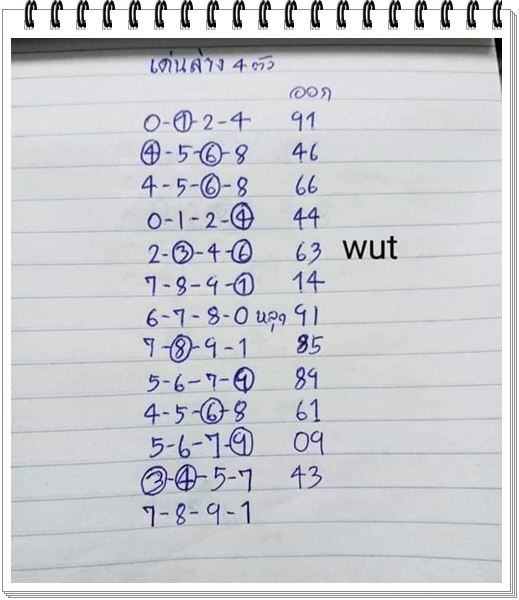 เด่นล่าง 4 ตัว
ออก
0-1-2-4 91
4-5-6-8 46
4-5-6-8 66
0-1-2-4 44
2-3-4-6 63 wut
7-8-9-1 14
6-7-8-0 หลุด 91
7-8-9-1 85
5-6-7-9 89
4-5-6-8 61
5-6-7-9 09
3-4-5-7 43
7-8-9-1